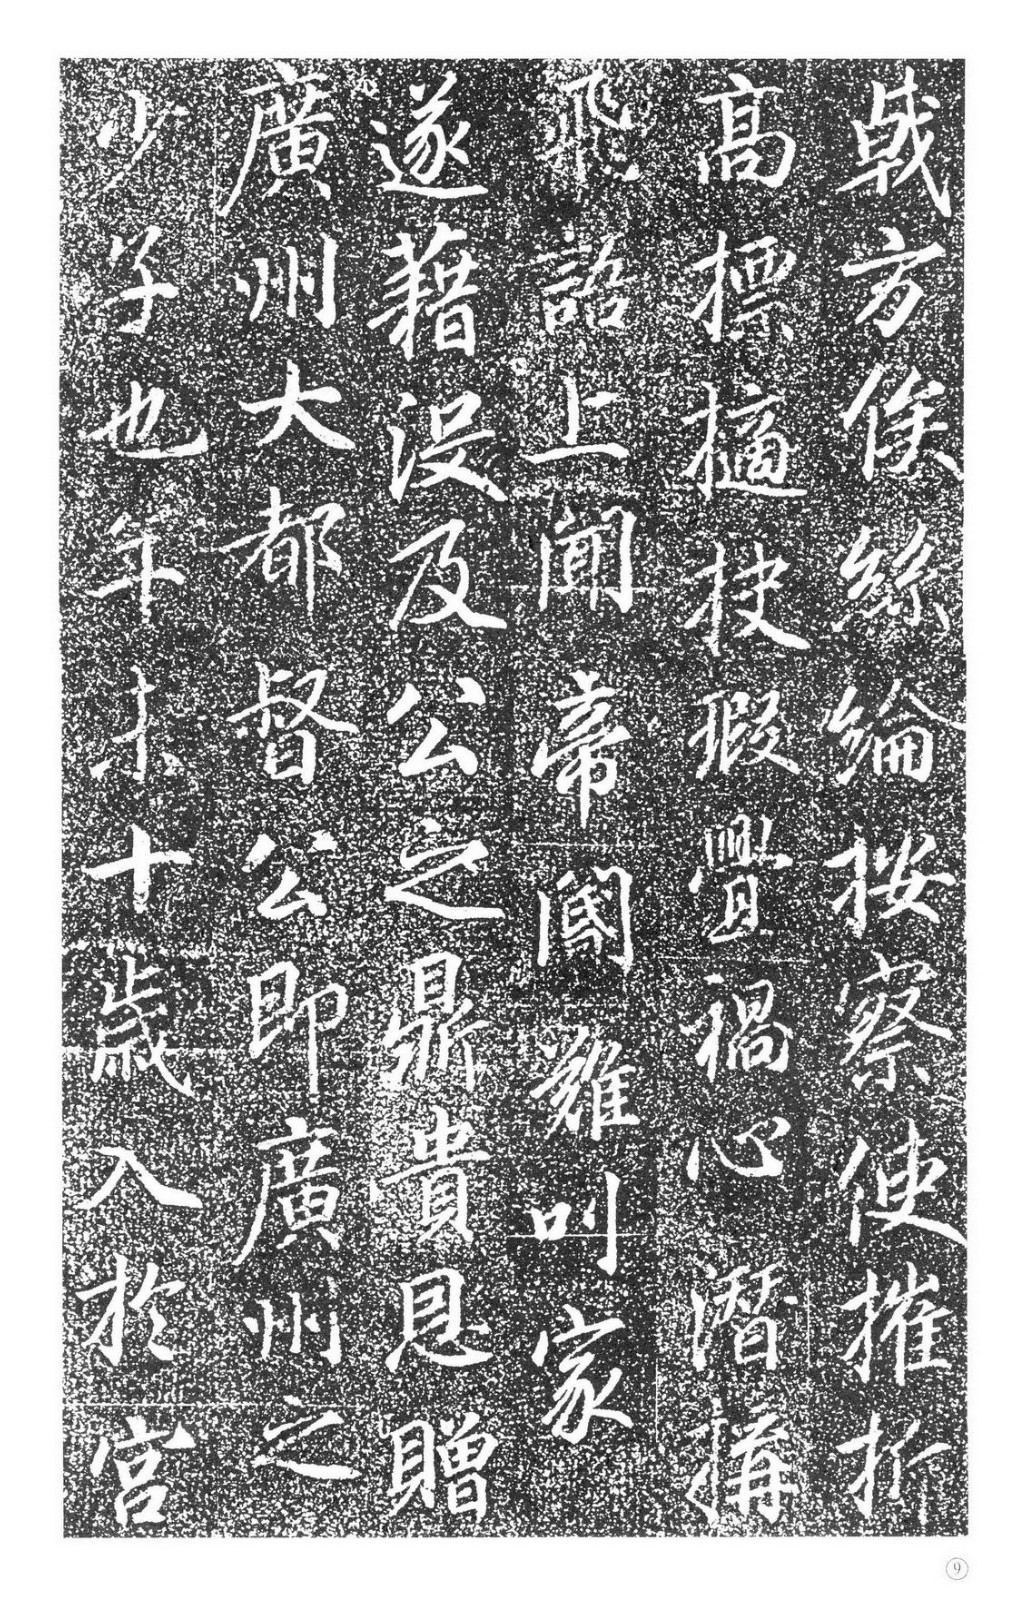 戟方俟絲綸按察使摧折
高標擿抉瑕舋禍心潛搆
飛語上聞帝閽難叫家
遂藉没及公之鼎貴恩贈
廣州大都督公即廣州之
少子也年未十歲入於宮
9